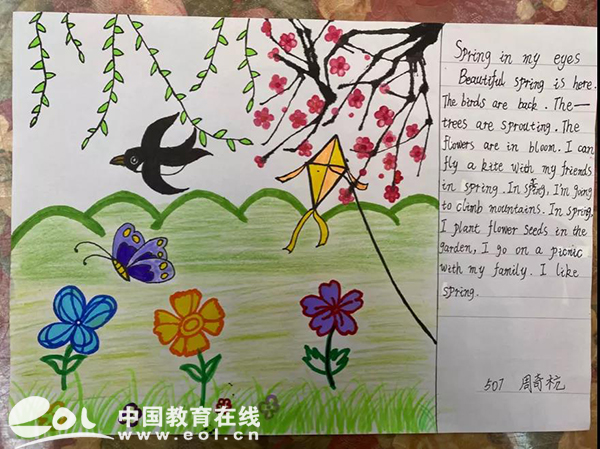 Spring in my eyes
Beautiful spring is here.
The birds are back. The—
trees are sprouting. The
flowers are in bloom. I can
fly a kite with my friends
in spring. In spring, I'm going
to climb mountains. In spring,
I plant flower seeds in the
garden, I go on a picnic
with my family. I like
spring.
507 周奇杭
eol 中国教育在线
www.eol.cn